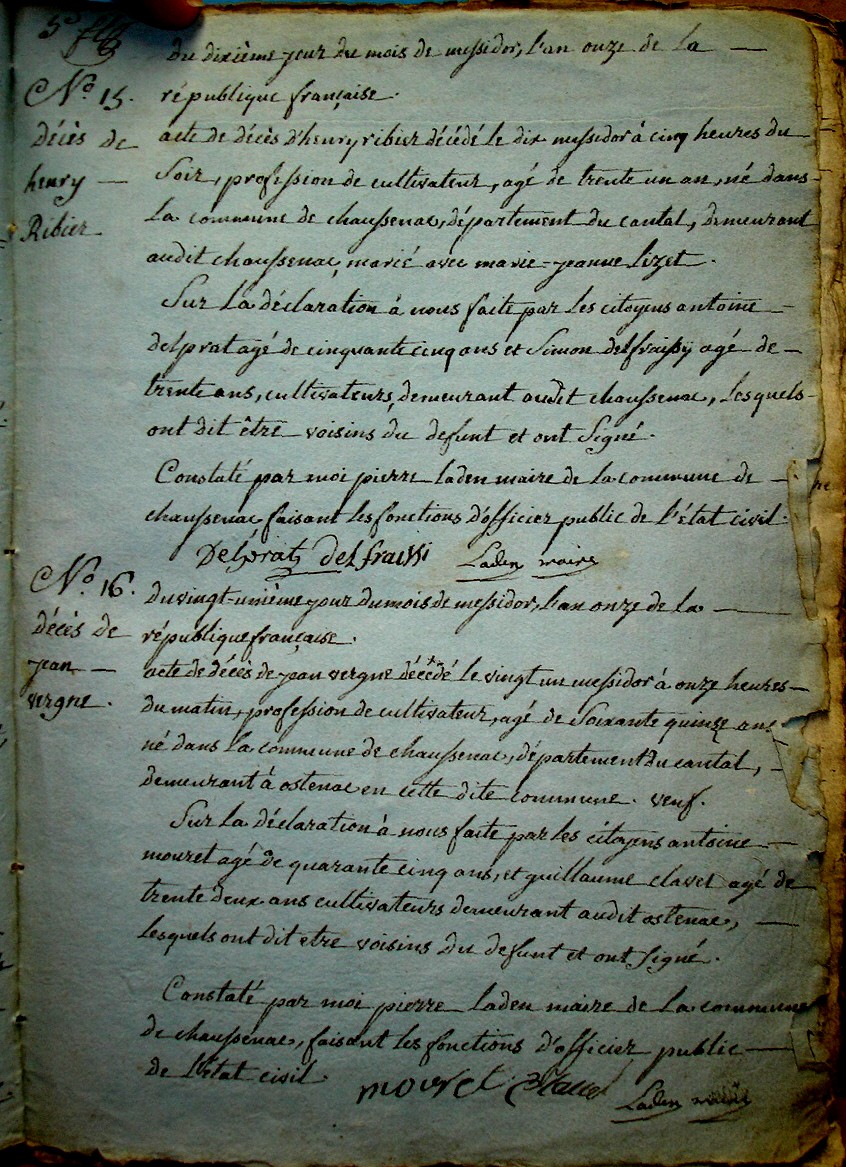 5e
du dixième jour du mois de messidor, l'an onze de la
No. 15.
république française.
décès de
henry
Ribier
acte de décès d'henry ribier décédé le dix messidor à cinq heures du
Soir, profession de cultivateur, agé de trente un an, né dans
la commune de chaussenac, département du cantal, demeurant
audit chaussenac, marié avec marie-jeanne lizet.
Sur la déclaration à nous faite par les citoyens antoine
delprat agé de cinquante cinq ans et Simon delfraissÿ agé de
trente ans, cultivateurs, demeurant audit chaussenac, lesquels
ont dit être voisins du defunt et ont Signé.
Constaté par moi pierre laden maire de la commune de
chaussenac faisant les fonctions d'officier public de l'état civil.
Delprat delfraissi Laden maire
No. 16.
décès de
jean
vergne.
du vingt-unième jour du mois de messidor, l'an onze de la
république française.
acte de décès de jean vergne décédé le vingt un messidor à onze heures
du matin, profession de cultivateur, agé de Soixante quinze ans
né dans la commune de chaussenac, département du cantal,
demeurant à ostenac en cette dite commune. veuf.
Sur la déclaration à nous faite par les citoyens antoine
mouret agé de quarante cinq ans, et guillaume clavel agé de
trente deux ans cultivateurs demeurant audit ostenac,
lesquels ont dit etre voisins du defunt et ont signé.
Constaté par moi pierre laden maire de la commune
de chaussenac, faisant les fonctions d'officier public
de l'état civil
mouret Laden maire